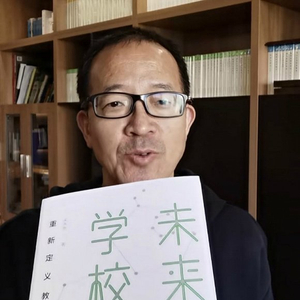 未来
学校
重新定义教